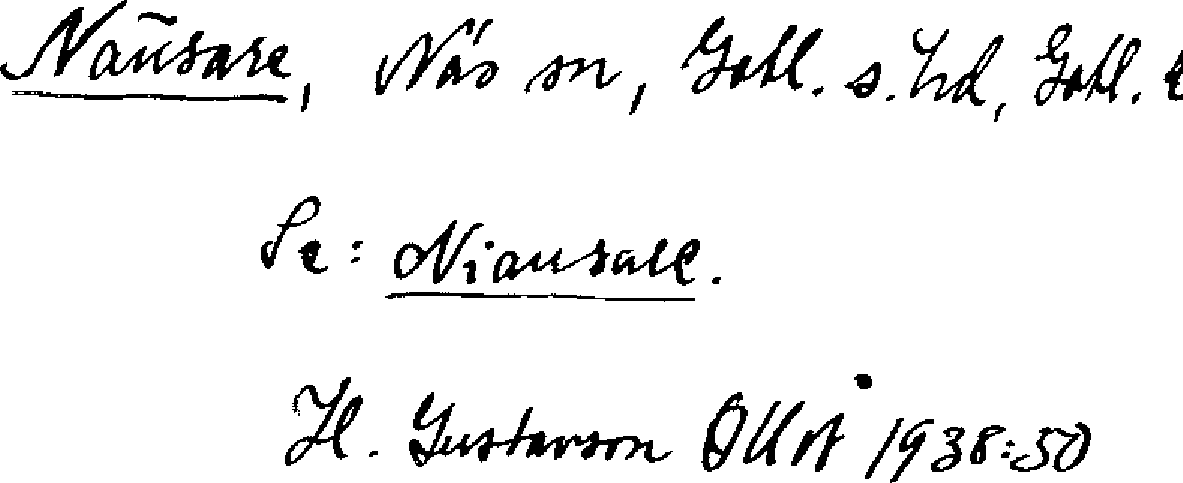 Nausare, Näs sn, Gotl. s. hd, Gotl. l
Se: Niausare.
H. Gustavson OUÅ 1938:50